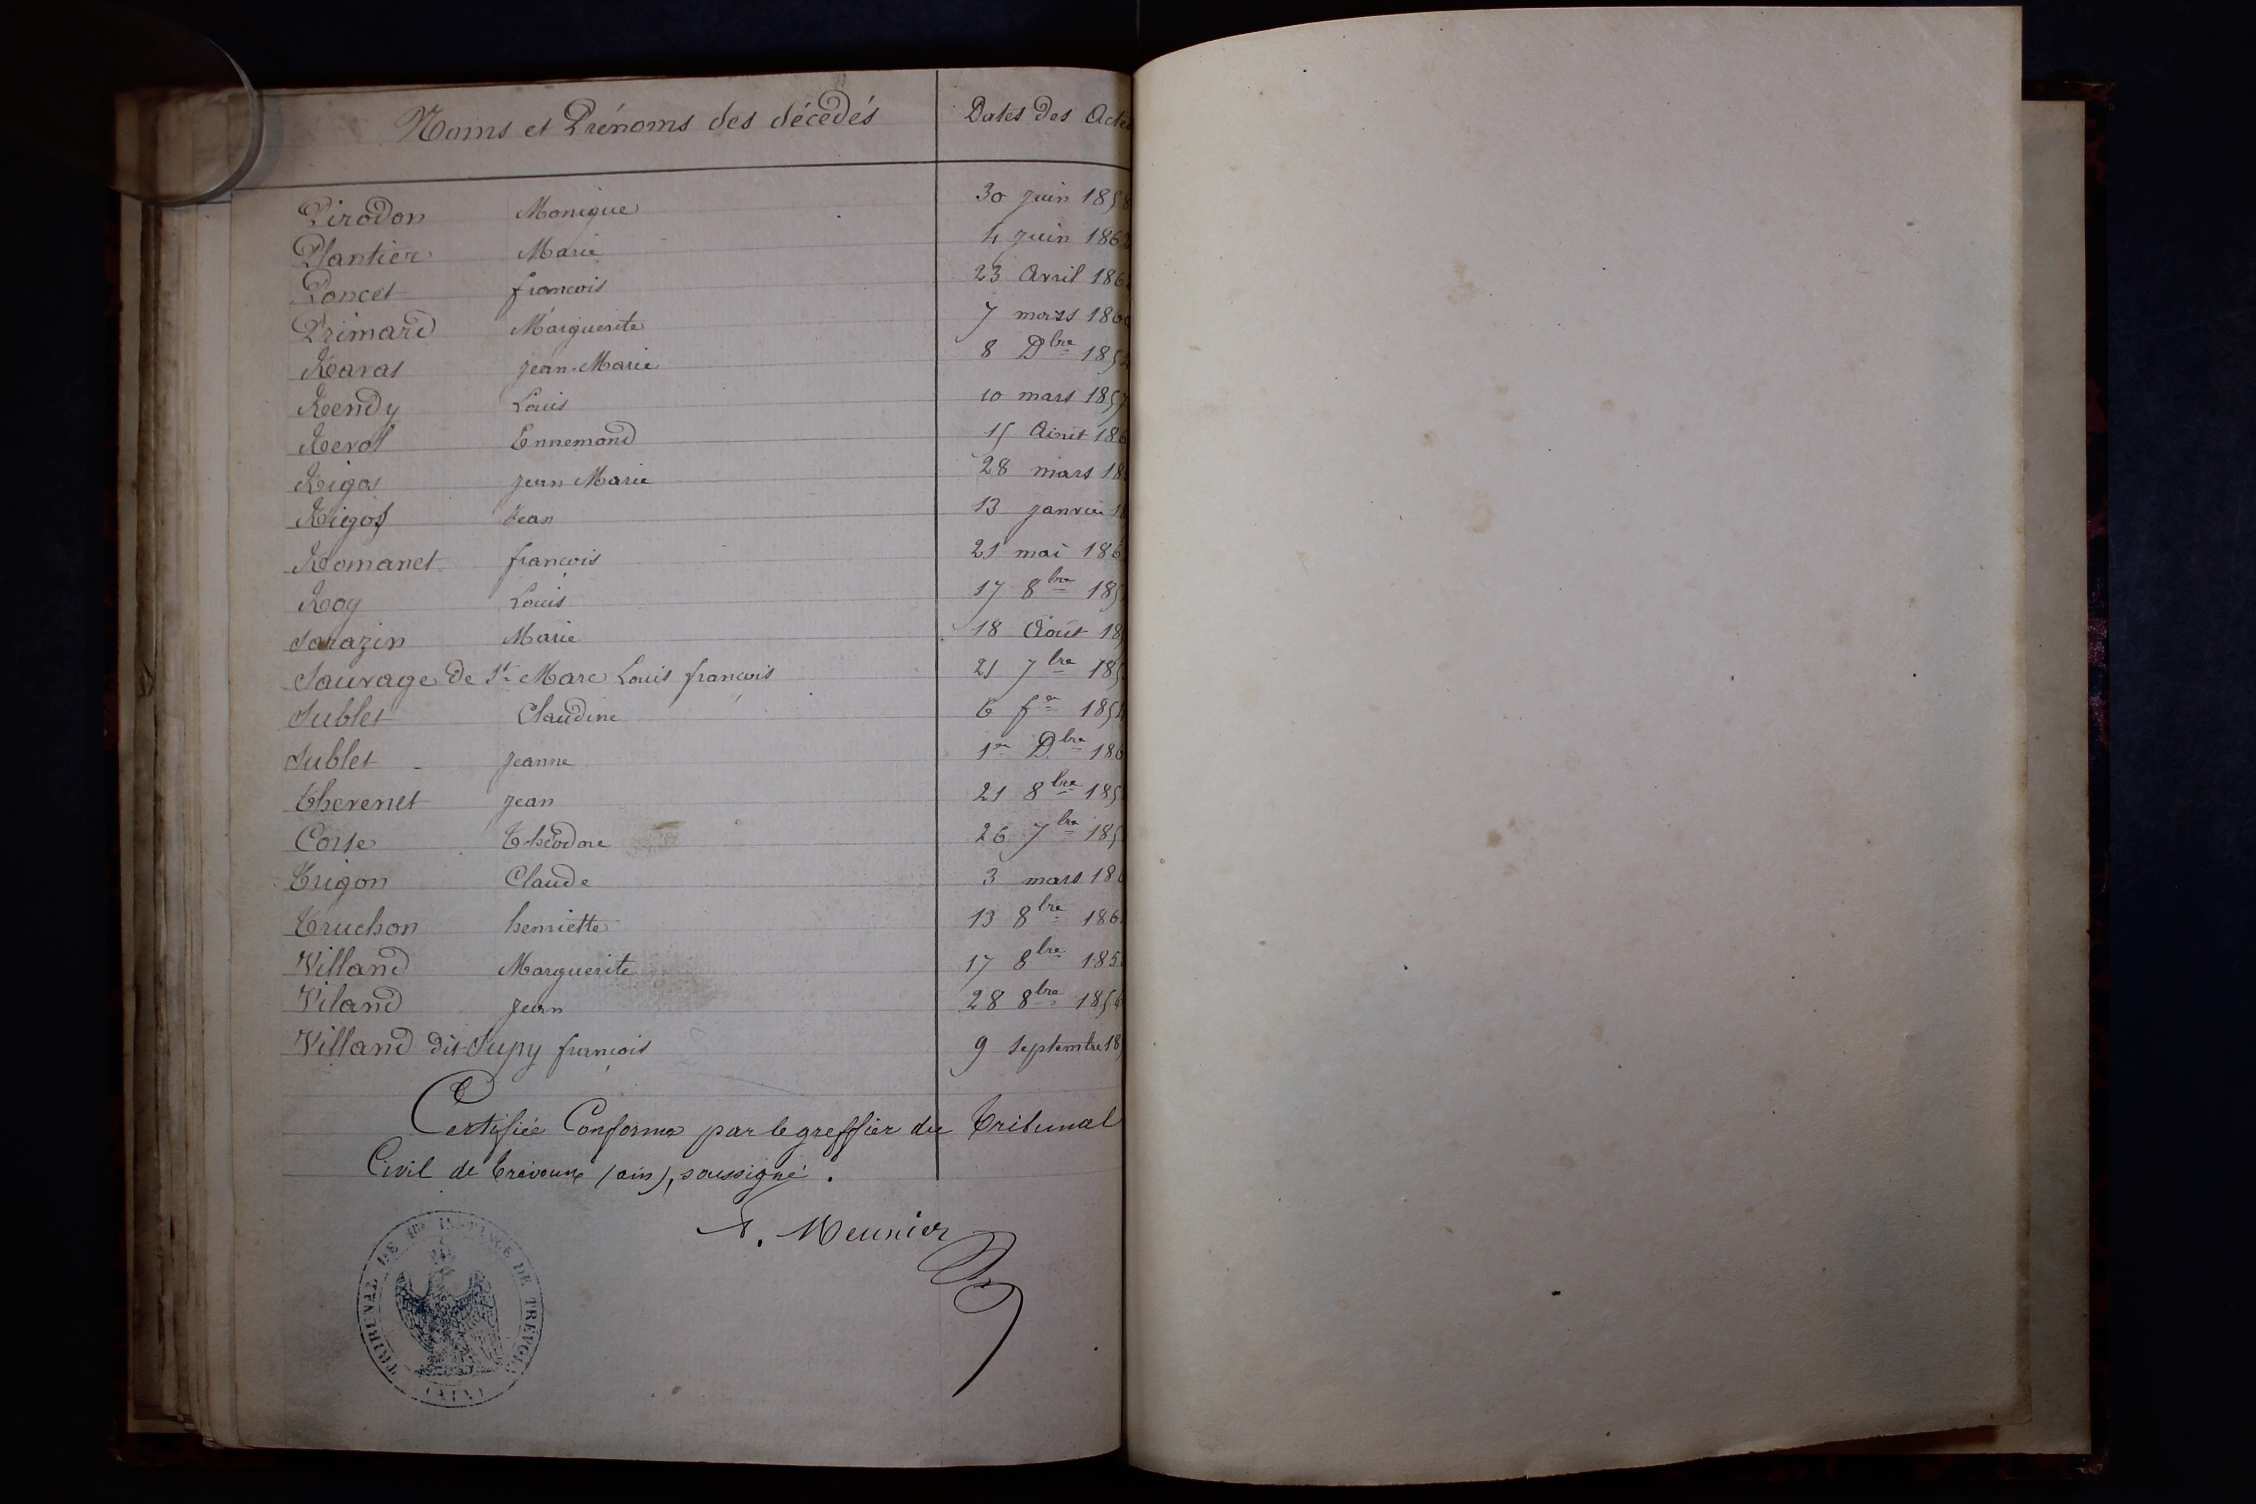 Noms et Prénoms des décédés Dates des Actes
Pirodon Monique 30 juin 1858
Plantier Marie 4 juin 186
Poncet françois 23 Avril 186
Primard Marguerite 7 mars 1860
Ravas Jean-Marie 8 Dbre 185
Rendy Louis 10 mars 1857
Revol Ennemond 15 Août 186
Rigos Jean Marie 28 mars 18
Rigos Jean 13 janvier 1
Romanet françois 21 mai 186
Roy Louis 17 8bre 185
Sarazin Marie 18 Août 18
Sauvage de St Marc Louis françois 21 7bre 185
Sublet Claudine 6 fer 185
Sublet Jeanne 1er Dbre 186
Thevenet Jean 21 8bre 185
Corse Théodore 26 7bre 185
Trigon Claude 3 mars 186
Truchon henriette 13 8bre 186
Villand Marguerite 17 8bre 185
Viland Jean 28 8bre 185
Villand dit Supy françois 9 Septembre 18
Certifiée Conforme par le greffier du Tribunal
Civil de Trévoux (ain), soussigné.
Meunier
TRIBUNAL DE 1RE INSTANCE DE TREVOUX
(AIN)